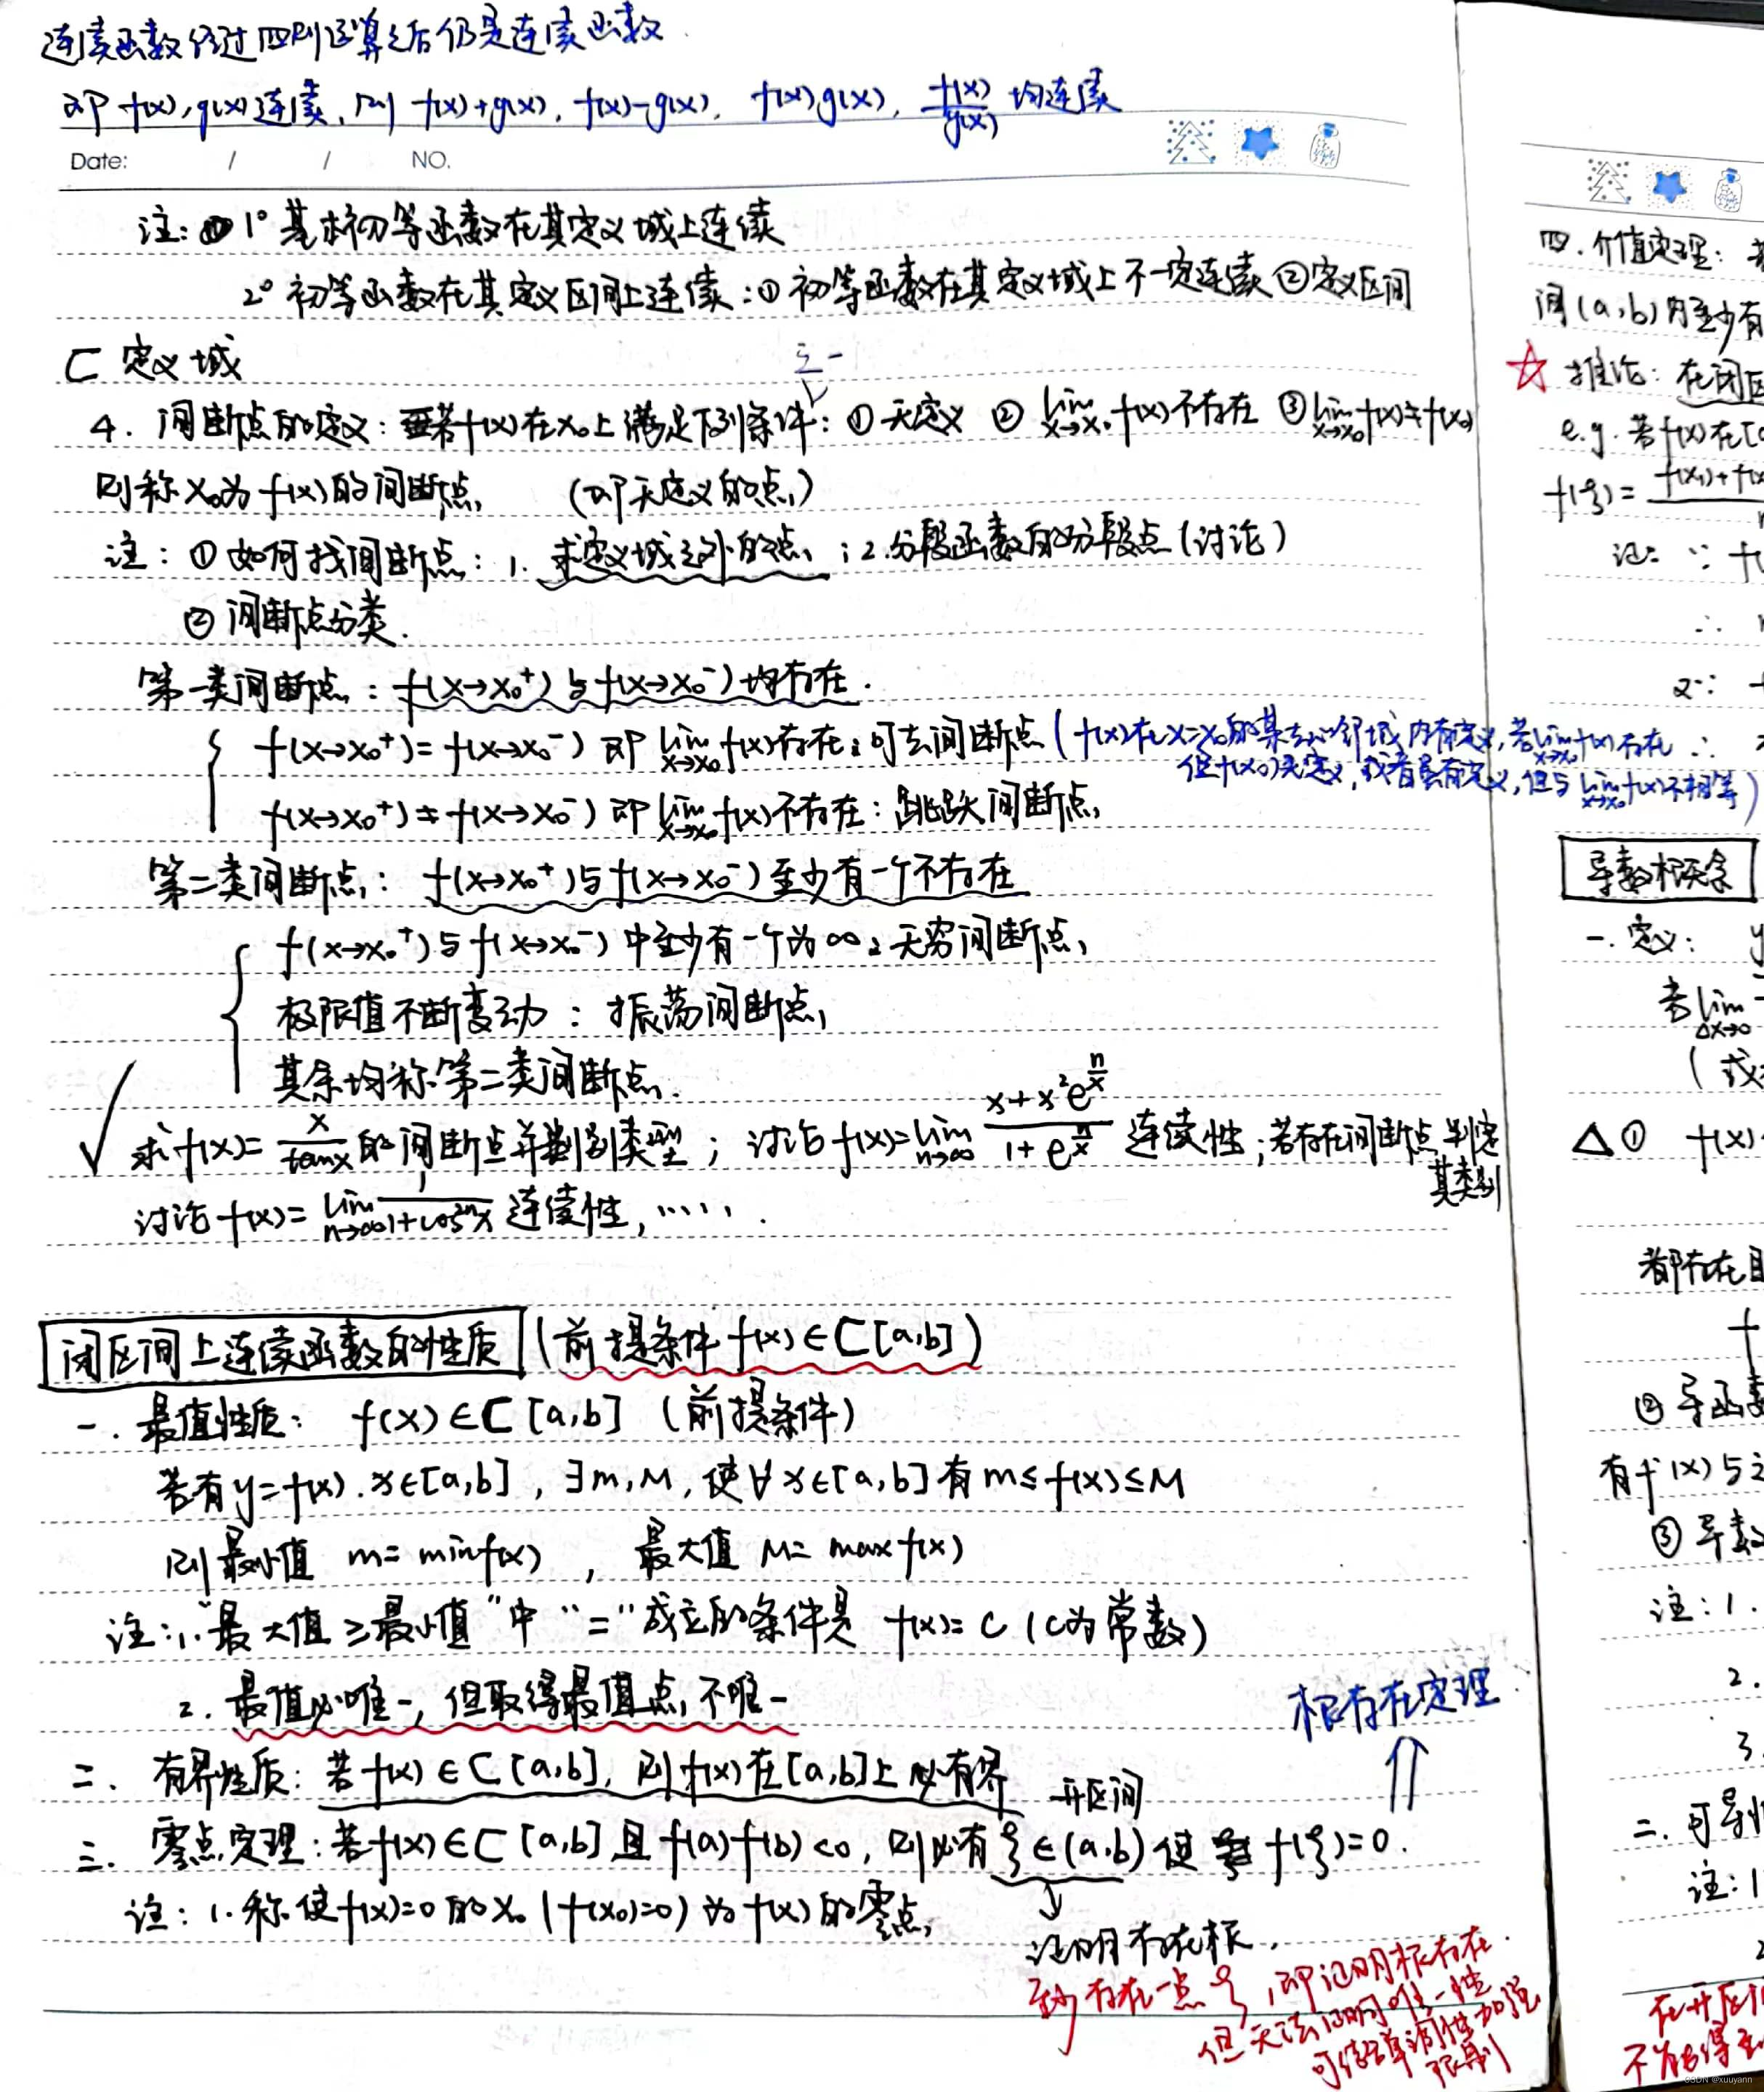 连续函数经过四则运算之后仍是连续函数
即 f(x), g(x) 连续, 则 f(x)+g(x), f(x)-g(x), f(x)g(x), f(x)/g(x) 均连续
Date: / / NO.
注: 1° 基本初等函数在其定义域上连续
2° 初等函数在其定义区间上连续: ① 初等函数在其定义域上不一定连续 ② 定义区间
⊂ 定义域
之一
4. 间断点的定义: 若f(x)在x₀上满足下列条件: ① 无定义 ② lim x→x₀ f(x)不存在 ③ lim x→x₀ f(x)≠f(x₀)
则称x₀为f(x)的间断点 (即无定义的点)
注: ① 如何找间断点: 1. 求定义域之外的点; 2. 分段函数的分段点(讨论)
② 间断点分类.
第一类间断点: f(x→x₀⁺)与f(x→x₀⁻)均存在.
f(x→x₀⁺)=f(x→x₀⁻) 即 lim x→x₀ f(x)存在: 可去间断点 (f(x)在x=x₀的某去心邻域内有定义, 若lim x→x₀ f(x)存在
但f(x₀)无定义, 或者虽有定义, 但与lim x→x₀ f(x)不相等)
f(x→x₀⁺)≠f(x→x₀⁻) 即 lim x→x₀ f(x)不存在: 跳跃间断点
第二类间断点: f(x→x₀⁺)与f(x→x₀⁻)至少有一个不存在
f(x→x₀⁺)与f(x→x₀⁻)中至少有一个为∞: 无穷间断点
极限值不断变动: 振荡间断点
其余均称第二类间断点.
✓ 求f(x)=x/tanx的间断点并判别类型; 讨论f(x)=lim n→∞ (x+x²e^(n/x))/(1+e^(n/x)) 连续性; 若存在间断点 判定
其类别
讨论f(x)=lim n→∞ 1/(1+cos²ⁿx) 连续性, ……
闭区间上连续函数的性质 (前提条件 f(x)∈C[a,b])
一. 最值性质: f(x)∈C[a,b] (前提条件)
若有y=f(x). x∈[a,b], ∃m,M, 使∀x∈[a,b]有m≤f(x)≤M
则最小值 m=minf(x), 最大值 M=maxf(x)
注: 1. "最大值≥最小值"中"="成立的条件是 f(x)=C (C为常数)
2. 最值必唯一, 但取得最值点不唯一
根存在定理
二. 有界性质: 若f(x)∈C[a,b], 则f(x)在[a,b]上必有界
开区间
三. 零点定理: 若f(x)∈C[a,b]且f(a)f(b)<0, 则必有ξ∈(a,b)使 f(ξ)=0.
注: 1. 称使f(x)=0的x₀ (f(x₀)=0)为f(x)的零点
证明存在根.
至少存在一点ξ, 即证明根存在.
但无法证明唯一性
可结合单调性加强
四. 介值定理:
间(a,b)内至少有
☆ 推论: 在闭区
e.g. 若f(x)在[
f(ξ)= f(x₁)+f(x
∵ f(
∴
又∵
导数概念
一. 定义: y
若lim Δx→0
(或
△① f(x)
都存在且
f
② 导函数
有f'(x)与
③ 导数
注: 1.
2.
3.
二. 可导性
注: 1
在开区间
不能得到
CSDN @xuuyann